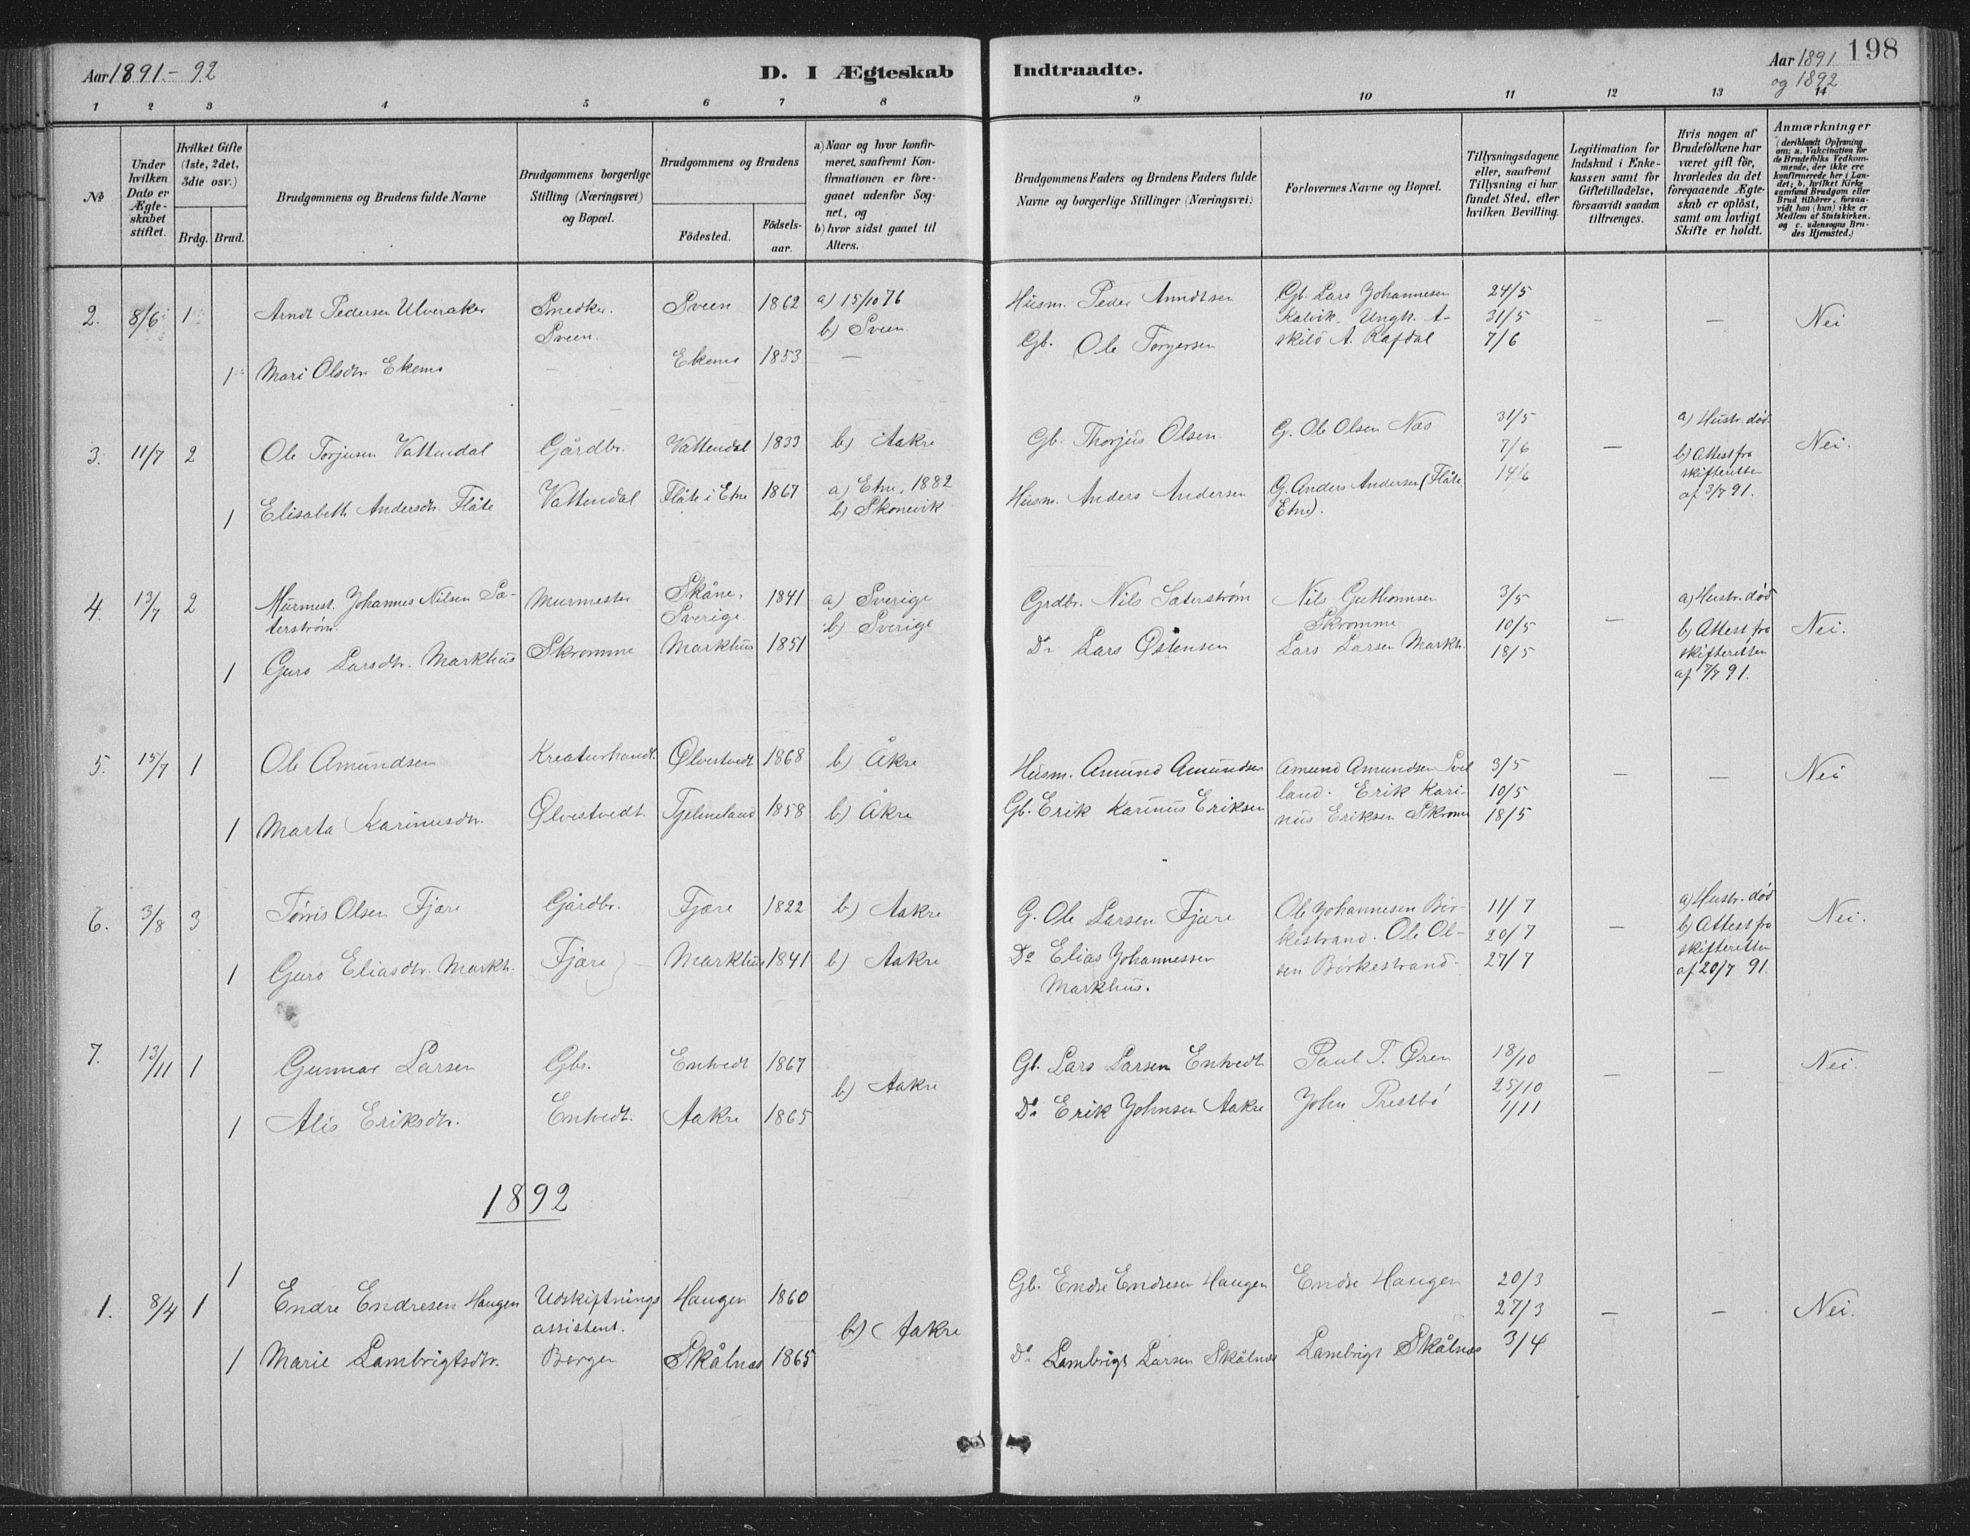 Aar 1891-92
D. I Ægteskab Indtraadte.
Aar 1891 og 1892
198
1 2 3 4 5 6 7 8 9 10 11 12 13 14
No
Under hvilken Dato er Ægteskabet stiftet.
Hvilket Gifte (1ste, 2det, 3die osv.)
Brdg. Brud.
Brudgommens og Brudens fulde Navne
Brudgommens borgerlige Stilling (Næringsvei) og Bopæl.
Brudgommens og Brudens
Fødested.
Fødselsaar.
a) Naar og hvor konfirmeret, saafremt Konfirmationen er foregaaet udenfor Sognet, og
b) hvor sidst gaaet til Alters.
Brudgommens Faders og Brudens Faders fulde Navne og borgerlige Stillinger (Næringsvei)
Forlovernes Navne og Bopæl.
Tillysningsdagene eller, saafremt Tillysning ei har fundet Sted, efter hvilken Bevilling.
Legitimation for Indskud i Enkekassen samt for Giftetilladelse, forsaavidt saadan tiltrænges.
Hvis nogen af Brudefolkene har været gift før, hvorledes da det foregaaende Ægteskab er opløst, samt om lovligt Skifte er holdt.
Anmærkninger (deriblandt Oplysning om: a. Vakcination for de Brudefolks Vedkommende, der ikke ere konfirmerede her i Landet; b. hvilket Kirkesamfund Brudgom eller Brud tilhører, forsaavidt han (hun) ikke er Medlem af Statskirken. og c. udensogns Brudes Hjemsted.)
2. 8/6 1 Arndt Pedersen Ulveraker Smedker. Sveen 1862 a) 15/10 76 Husm. Peder Arndtsen Gb. Lars Johannesen 24/5
Sveen. b) Sveen. Kalvik. Ungk. A- 31/5 - - Nei
1 Mari Olsdtr. Ekemo - Ekemo 1853 - Gb. Ole Torgersen skild A. Rafdal 7/6
3. 11/7 2 Ole Torjusen Vattendal Gårdbr. Vattendal 1833 b) Aakre Gb. Thorjus Olsen G. Ole Olsen Næs 31/5 a) Hustr. død
7/6 - b) Attest fra Nei.
1 Elisabeth Andersdtr. Flåte Vattendal Flåte i Etne 1867 a) Etne, 1882 Husm. Anders Andersen G. Anders Andersen (Flåte 14/6 skifteretten
b) Skonevik Etne). af 3/7 91.
4. 13/7 2 Murmest. Johannes Nilsen Sæ- Murmester Skåne, 1841 a) Sverige Grdbr. Nils Säterström Nils Guthormsen 3/5 a) Hustr. død
terstrøm. Sverige. b) Sverige Skromme 10/5 - b) Attest fra Nei.
1 Guro Larsdtr. Markhus Skromme Markhus 1851 Do Lars Østensen Lars Larsen Markh. 18/5 skifteretten
af 7/7 91.
5. 15/7 1 Ole Amundsen Kreaturhandl. Ølvestvedt 1868 b) Åkre Husm. Amund Amundsen Amund Amundsen 3/5
land. Erik Kari- 10/5 - - Nei
1 Marta Karinusdtr. Ølvestvedt Tjelmeland 1858 b) Åkre Gb. Erik Karinus Eriksen nus Eriksen Skromme 18/5
6. 3/8 3 Tørris Olsen Fjære Gårdbr. Fjære 1822 b) Aakre G. Ole Larsen Fjære Ole Johannesen Bør- 11/7 a) Hustr. død
kestrand. Ole Ol- 20/7 - b) Attest fra Nei.
1 Guro Eliasdtr. Markh. Fjære Markhus 1841 b) Aakre Do Elias Johannessen sen Børkestrand 27/7 skifteretten
Markhus. af 20/7 91.
7. 13/11 1 Gunnar Larsen Gbr. Entvedt 1867 Gb. Lars Larsen Entvedt Paul T. Øren 18/10
b) Aakre 25/10 - - Nei.
1 Alis Eriksdtr. Entvedt. Aakre 1865 Do Erik Johnsen Aakre John Prestbø 1/11
1892
1
1. 8/4 1 Endre Endresen Haugen Udskiftnings Haugen 1860 Gb. Endre Endresen Haugen Endre Haugen 20/3
assistent. b) Aakre 27/3 - - Nei.
1 Marie Lambrigtsdtr. Bergen Skålnæs 1865 Do Lambrigt Larsen Skålnæs Lambrigt Skålnæs 3/4